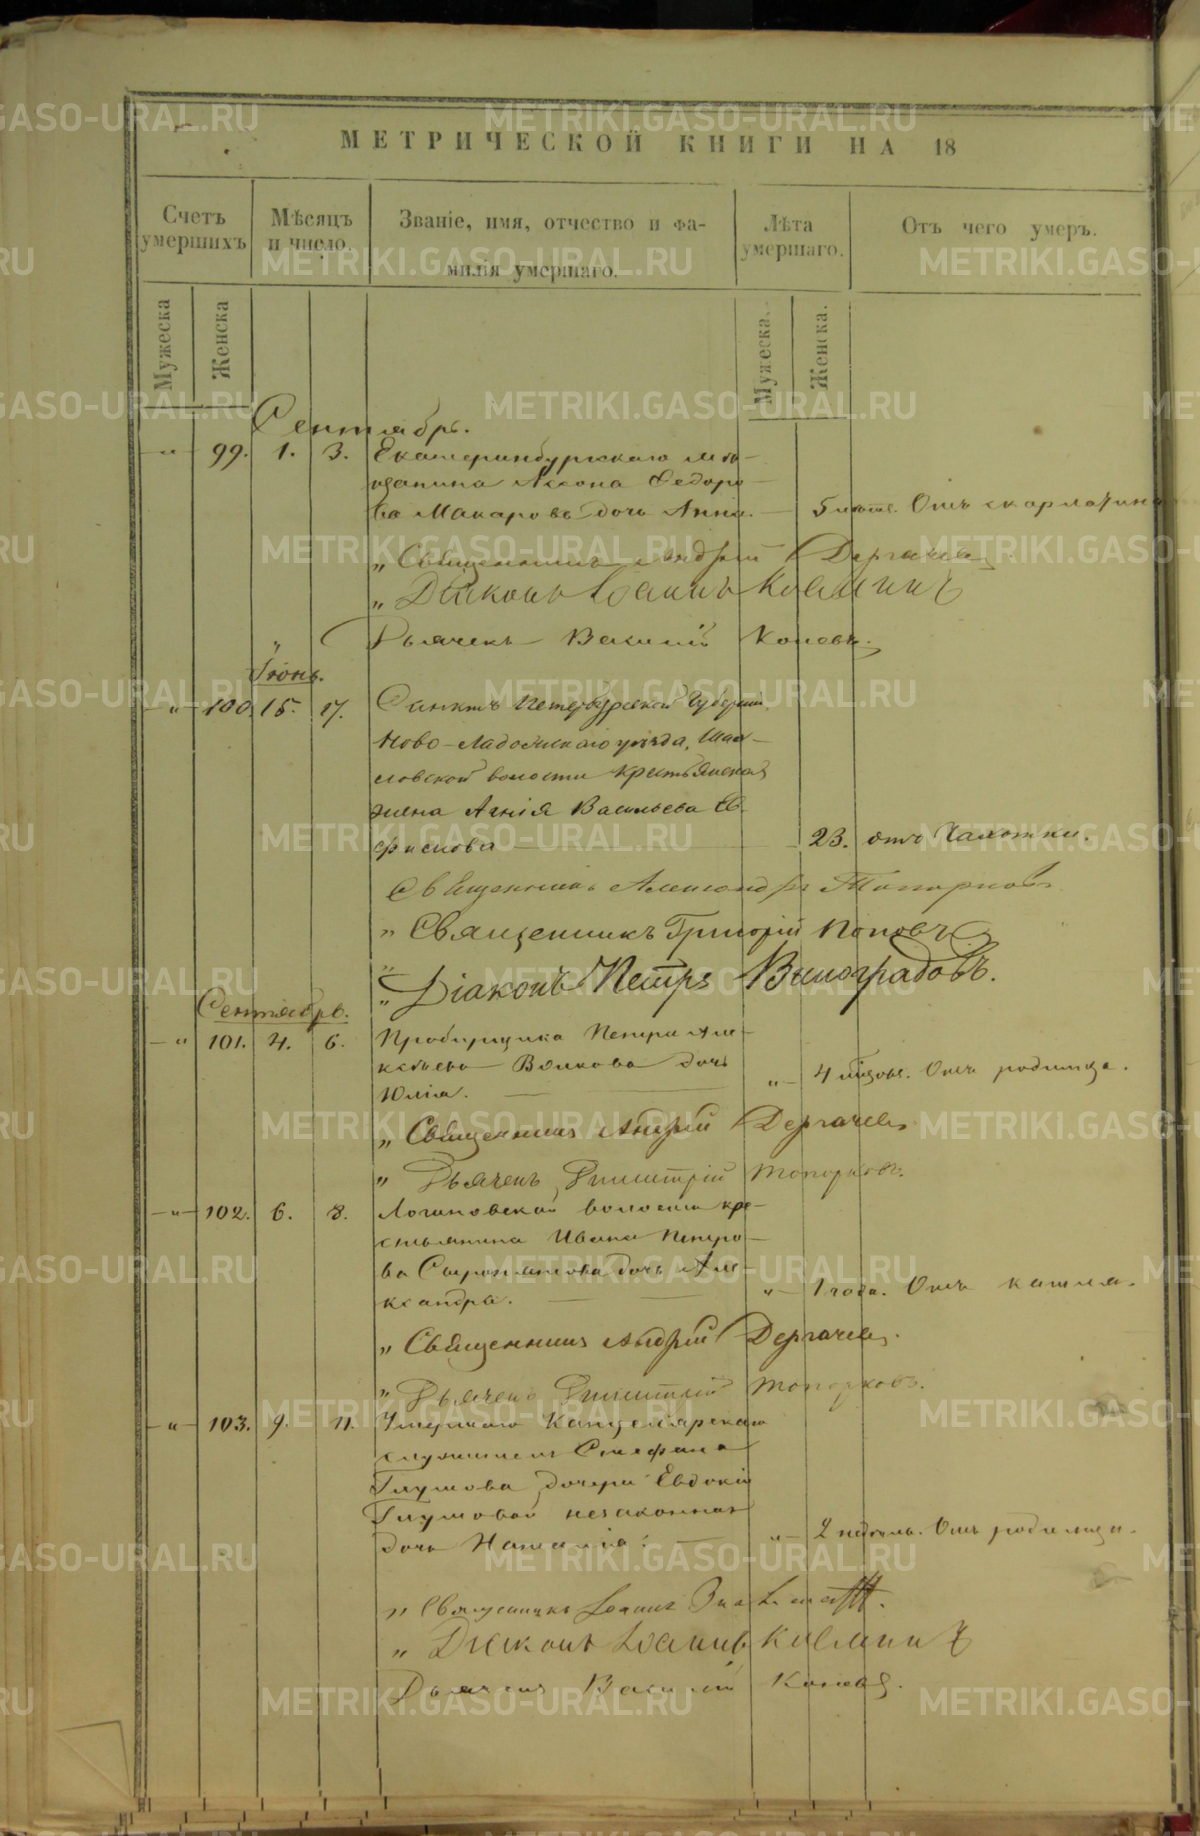 МЕТРИЧЕСКОЙ КНИГИ НА 18
Счетъ умершихъ
Мѣсяцъ и число.
Званіе, имя, отчество и фамилія умершаго.
Лѣта умершаго.
Отъ чего умеръ.
Мужеска
Женска
Мужеска.
Женска.
Сентябрь.
99. 1. 3. Екатеринбургскаго мѣ-
щанина Федоро-
ва Макарова дочь Анна. — 5 лѣтъ. Отъ скарлатины
„ Священникъ Андрей Дергачевъ
„ Діаконъ Іоаннъ
Дьячекъ Василій Коневъ.
Іюнь.
„ 100. 15. 17. Санктъ Петербургской Губерніи
Ново-Ладожскаго уѣзда, Шах-
ловской волости Крестьянская
жена Агнія Васильева
23. отъ Чахотки.
Священникъ Александръ Топорковъ
„ Священникъ Григорій Поповъ
„ Діаконъ Петръ Виноградовъ.
Сентябрь.
— „ 101. 4. 6. Пробирщика Петра Але-
ксѣева Волкова дочь
Юлія. — „ — 4 мѣсяц. Отъ родимца.
„ Священникъ Андрей Дергачевъ
„ Дьячекъ Димитрій Топорковъ.
— „ — 102. 6. 8. Логиновской волости кре-
стьянина Ивана Петро-
ва Сыромятова дочь Але-
ксандра. — „ — 1 года. Отъ кашля.
„ Священникъ Андрей Дергачевъ.
„ Дьячекъ Димитрій Топорковъ.
— „ — 103. 9. 11. Умершаго Канцелярскаго
служителя Стефана
Глушова дочери Евдокіи
Глушовой незаконная
дочь Наталія. — „ — 2 недѣль. Отъ родимца.
„ Священникъ Іоаннъ
„ Діаконъ Іоаннъ
Дьячекъ Василій Коневъ.
METRIKI.GASO-URAL.RU